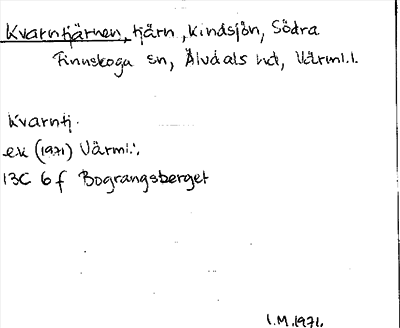 Kvarntjärnen, tjärn, Kindsjön, Södra
Finnskoga sn, Älvdals hd, Värml.l.
Kvarntj.
ek (1971) Värml.
13C 6f Bograngsberget
I.M. 1971.